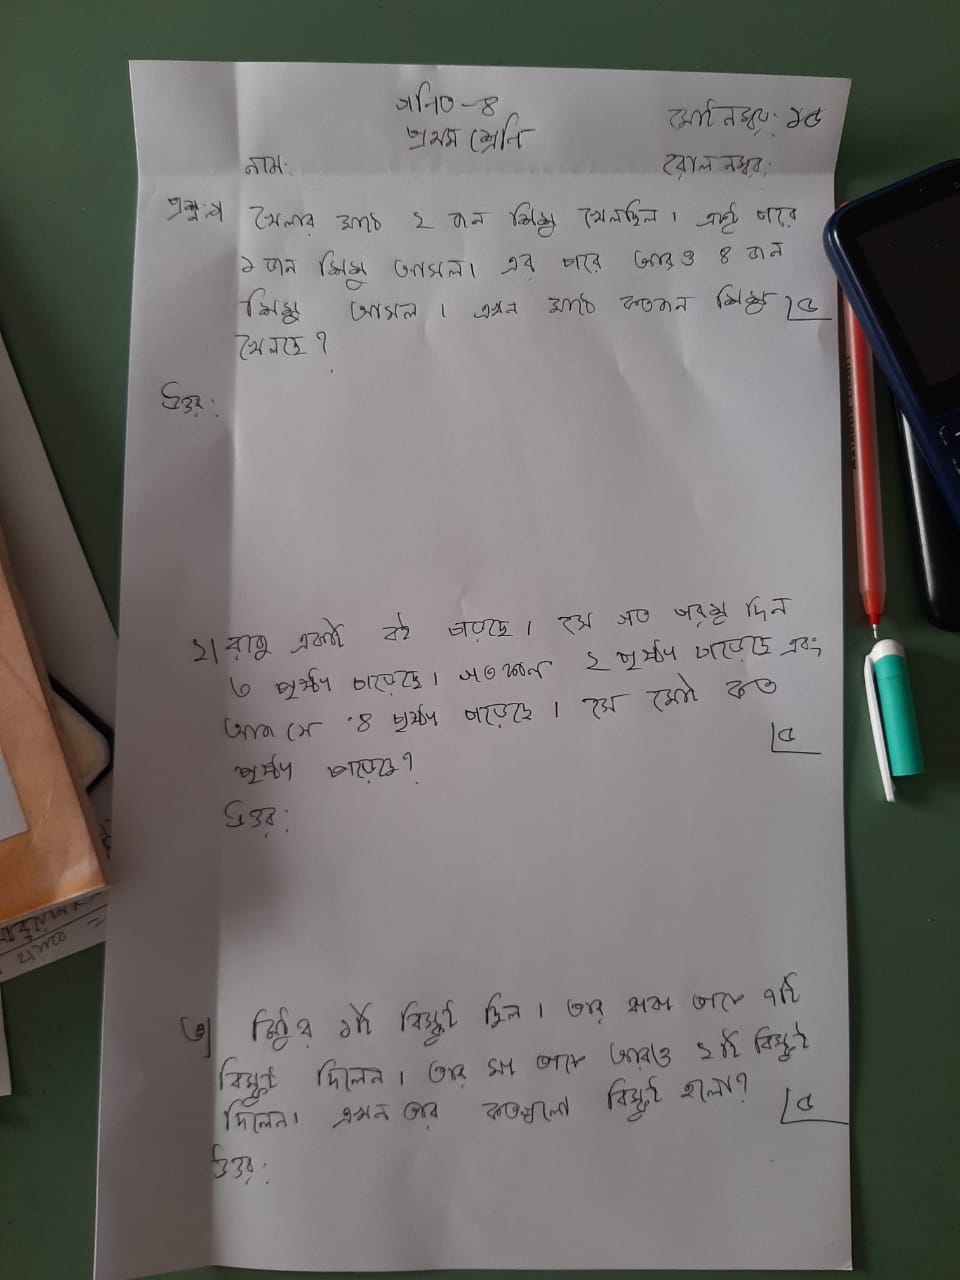 গনিত-৪
প্রথম শ্রেনি
মোট নম্বর: ১৫
নাম:
রোল নম্বর:
প্রশ্ন:১ খেলার মাঠে ২ জন শিশু খেলছিল। একটু পরে
১ জন শিশু আসল। এর পরে আরও ৪ জন
শিশু আসল। এখন মাঠে কতজন শিশু ৫
খেলছে?
উত্তর:
২| রাজু একটা বই পড়ছে। সে গত পরশু দিন
৩ পৃষ্ঠা পড়েছে। গতকাল ২ পৃষ্ঠা পড়েছে এবং
আজ সে ৪ পৃষ্ঠা পড়েছে। সে মোট কত
পৃষ্ঠা পড়েছে? ৫
উত্তর:
৩| মিঠুর ১টি বিস্কুট ছিল। তার বাবা তাকে ৭টি
বিস্কুট দিলেন। তার মা তাকে আরও ২টি বিস্কুট
দিলেন। এখন তার কতগুলো বিস্কুট হলো? ৫
উত্তর: